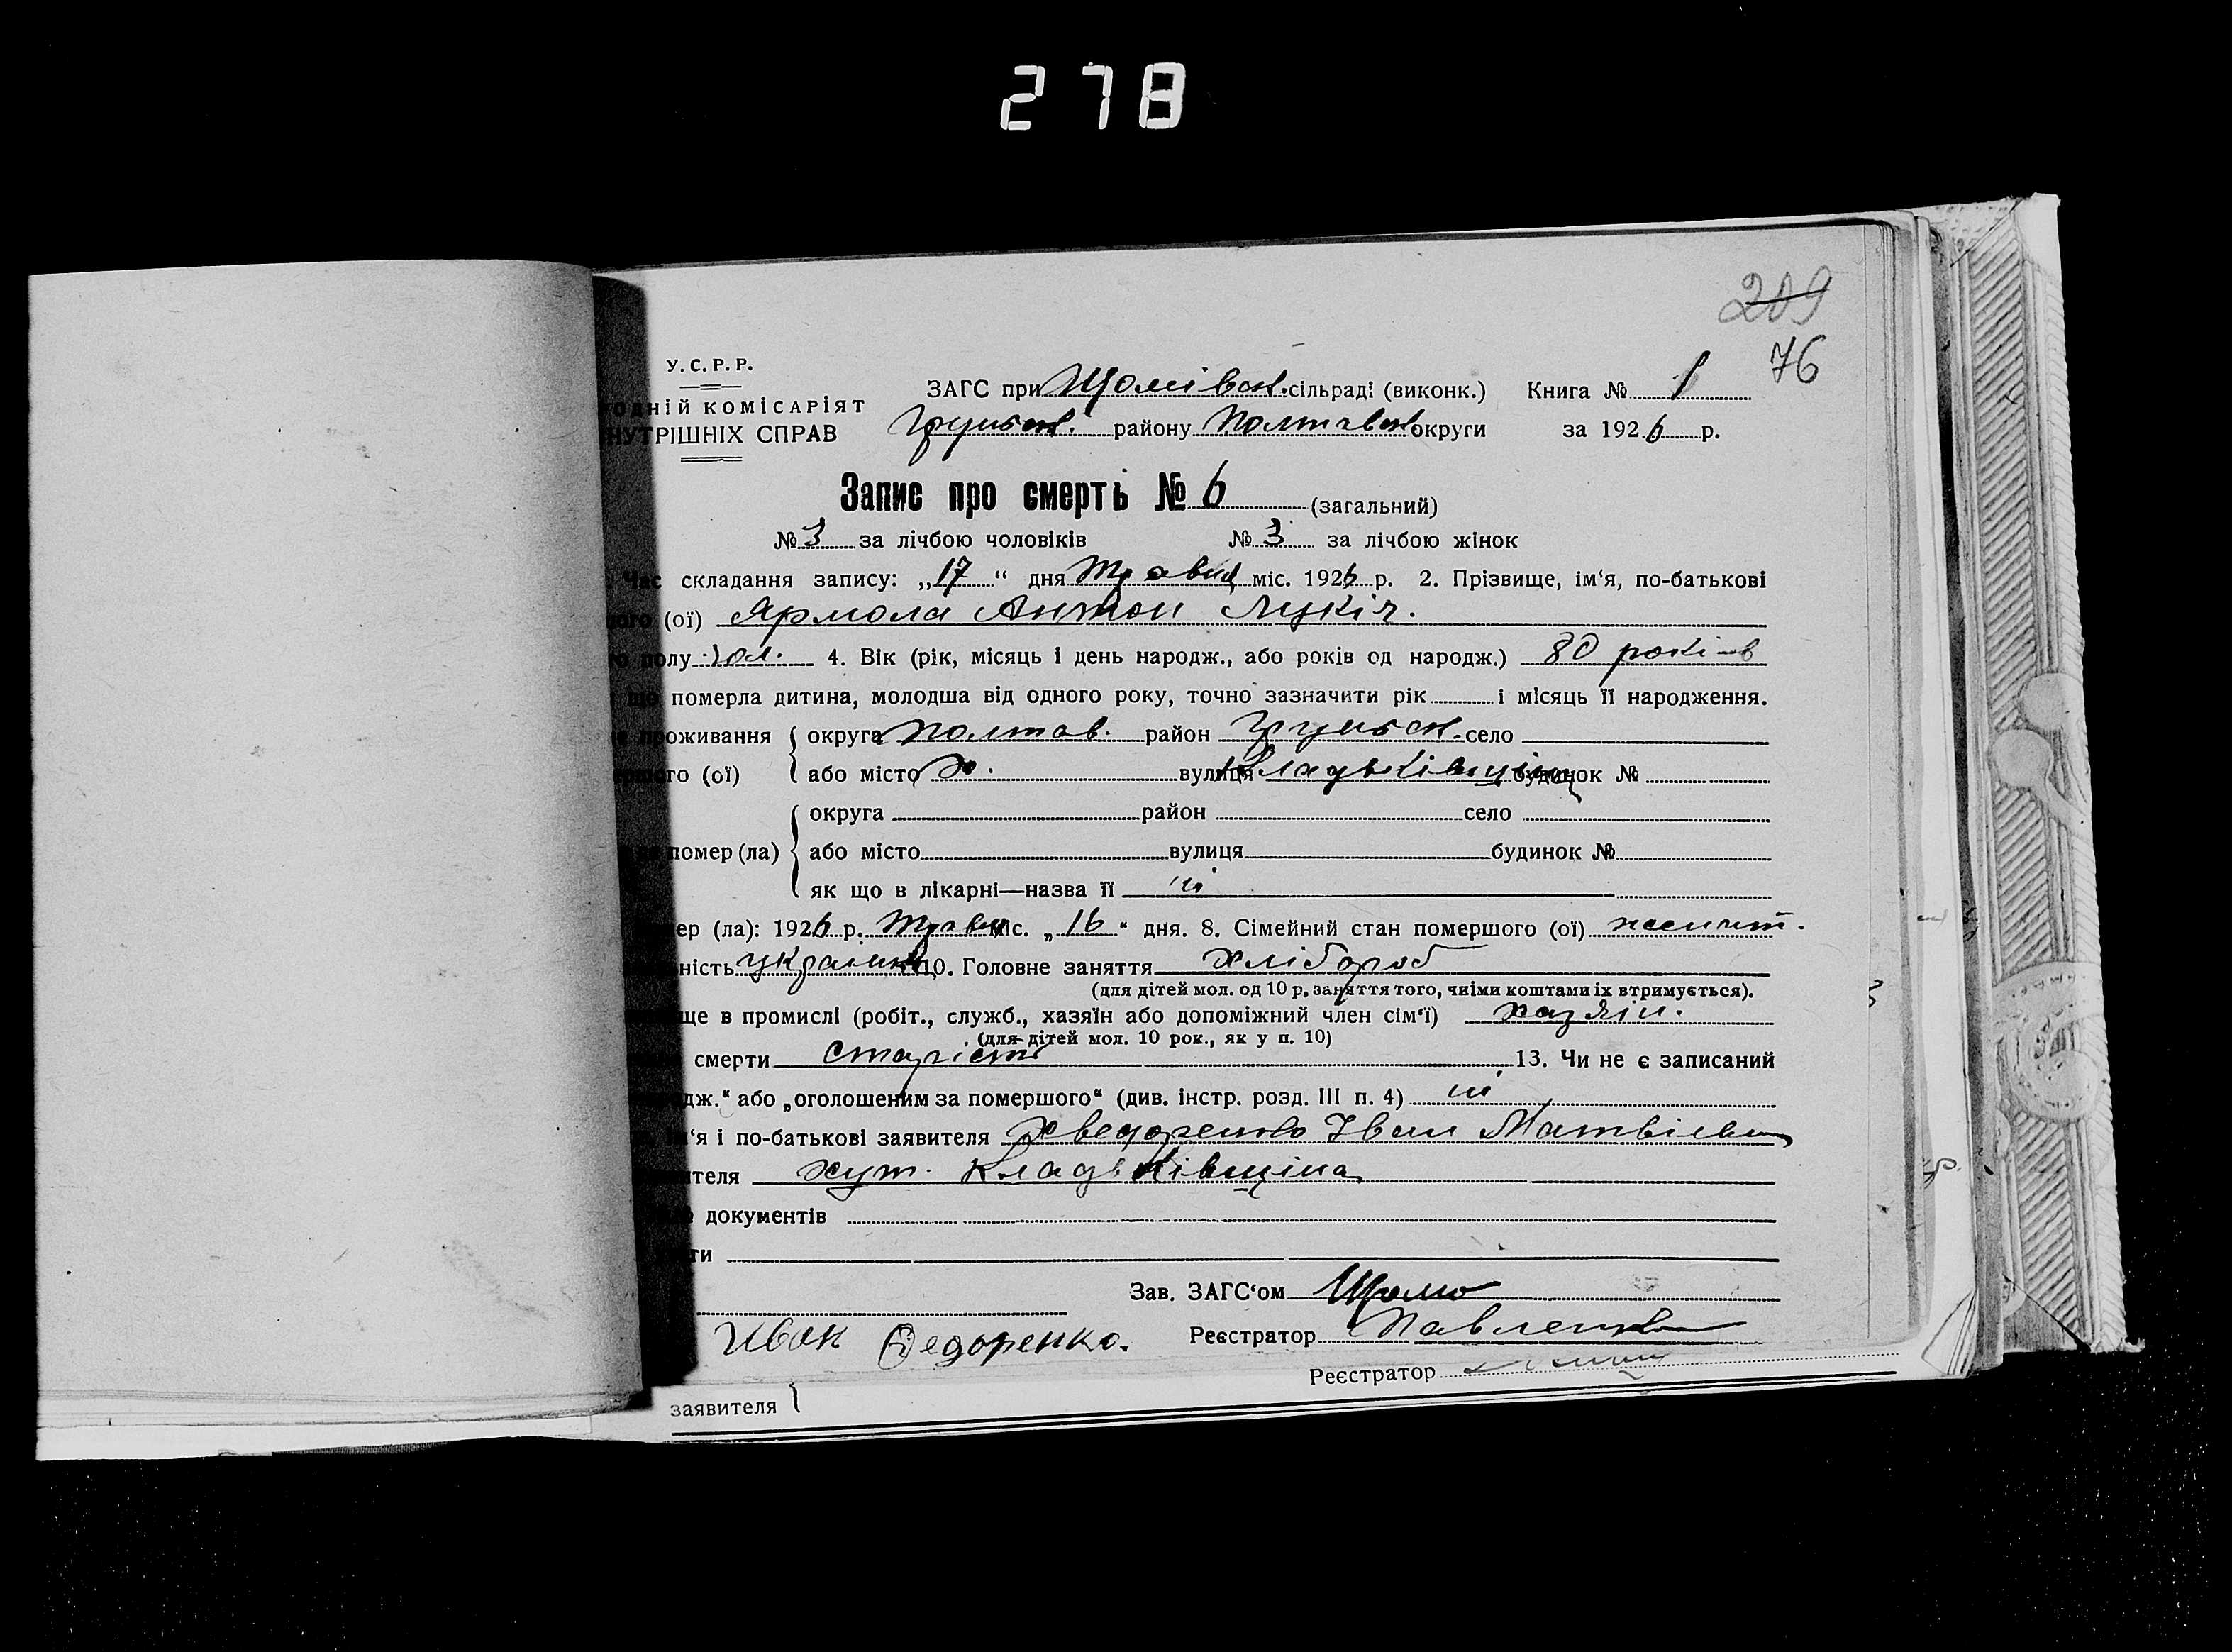 278
209
76
У.С.Р.Р.
ЗАГС при Щомівськ. сільраді (виконк.) Книга № 1
ОДНІЙ КОМІСАРІЯТ
НУТРІШНІХ СПРАВ
Грунськ. району Полтавськ округи за 1926 р.
Запис про смерть № 6 (загальний)
№ 3 за лічбою чоловіків № 3 за лічбою жінок
Час складання запису: „17“ дня Травня міс. 1926 р. 2. Прізвище, ім‘я, по-батькові
ого (ої) Ярмола Антон Лукіч.
полу чол. 4. Вік (рік, місяць і день народж., або років од народж.) 80 років
що померла дитина, молодша від одного року, точно зазначити рік і місяць її народження.
проживання округа Полтав. район Грунськ. село
ого (ої) або місто х. вулиця Кладьківщіна будинок №
округа район село
помер (ла) або місто вулиця будинок №
як що в лікарні—назва її ні
ер (ла): 1926 р. Травня міс. „16“ дня. 8. Сімейний стан помершого (ої)
ність україн 10. Головне заняття хлібороб
(для дітей мол. од 10 р, заняття того, чиїми коштами їх втримується).
ще в промислі (робіт., служб., хазяїн або допоміжний член сім‘ї) хазяїн.
(для дітей мол. 10 рок., як у п. 10)
смерти старість 13. Чи не є записаний
дж.“ або „оголошеним за помершого“ (див. інстр. розд. III п. 4) ні
‘я і по-батькові заявителя Хведоренко Іван Матвієвич
теля хут. Кладьківщіна
документів
ти
Зав. ЗАГС‘ом
Иван Федоренко. Реєстратор Павленко
Реєстратор
заявителя